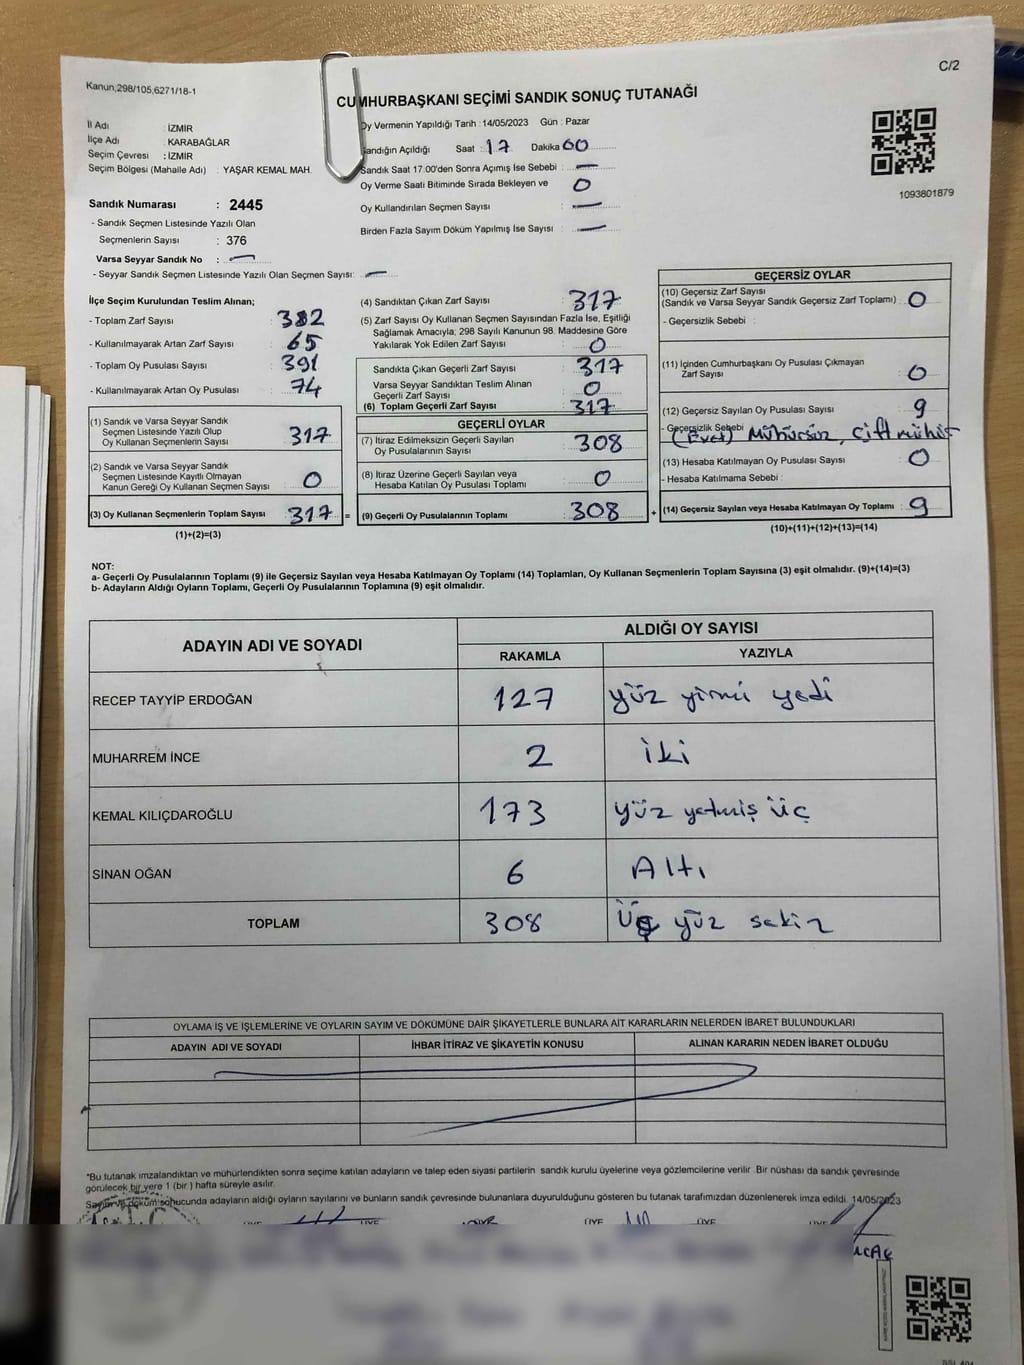 Kanun,298/105,6271/18-1
C/2
CUMHURBAŞKANI SEÇİMİ SANDIK SONUÇ TUTANAĞI
İl Adı : İZMİR
İlçe Adı : KARABAĞLAR
Seçim Çevresi : İZMİR
Seçim Bölgesi (Mahalle Adı) : YAŞAR KEMAL MAH.
Sandık Numarası : 2445
- Sandık Seçmen Listesinde Yazılı Olan
Seçmenlerin Sayısı : 376
Varsa Seyyar Sandık No : —
- Seyyar Sandık Seçmen Listesinde Yazılı Olan Seçmen Sayısı: —
Oy Vermenin Yapıldığı Tarih :14/05/2023 Gün : Pazar
Sandığın Açıldığı Saat : 17 Dakika 00
Sandık Saat 17.00'den Sonra Açımış İse Sebebi : —
Oy Verme Saati Bitiminde Sırada Bekleyen ve 0
Oy Kullandırılan Seçmen Sayısı : —
Birden Fazla Sayım Döküm Yapılmış İse Sayısı : —
1093801879
İlçe Seçim Kurulundan Teslim Alınan;
- Toplam Zarf Sayısı : 382
- Kullanılmayarak Artan Zarf Sayısı : 65
- Toplam Oy Pusulası Sayısı : 391
- Kullanılmayarak Artan Oy Pusulası : 74
(1) Sandık ve Varsa Seyyar Sandık
Seçmen Listesinde Yazılı Olup
Oy Kullanan Seçmenlerin Sayısı : 317
(2) Sandık ve Varsa Seyyar Sandık
Seçmen Listesinde Kayıtlı Olmayan
Kanun Gereği Oy Kullanan Seçmen Sayısı : 0
(3) Oy Kullanan Seçmenlerin Toplam Sayısı : 317 =
(1)+(2)=(3)
(4) Sandıktan Çıkan Zarf Sayısı : 317
(5) Zarf Sayısı Oy Kullanan Seçmen Sayısından Fazla İse, Eşitliği
Sağlamak Amacıyla; 298 Sayılı Kanunun 98. Maddesine Göre
Yakılarak Yok Edilen Zarf Sayısı : 0
Sandıkta Çıkan Geçerli Zarf Sayısı : 317
Varsa Seyyar Sandıktan Teslim Alınan
Geçerli Zarf Sayısı : 0
(6) Toplam Geçerli Zarf Sayısı : 317
GEÇERLİ OYLAR
(7) İtiraz Edilmeksizin Geçerli Sayılan
Oy Pusulalarının Sayısı : 308
(8) İtiraz Üzerine Geçerli Sayılan veya
Hesaba Katılan Oy Pusulası Toplamı : 0
(9) Geçerli Oy Pusulalarının Toplamı : 308 +
GEÇERSİZ OYLAR
(10) Geçersiz Zarf Sayısı
(Sandık ve Varsa Seyyar Sandık Geçersiz Zarf Toplamı) : 0
- Geçersizlik Sebebi :
(11) İçinden Cumhurbaşkanı Oy Pusulası Çıkmayan
Zarf Sayısı : 0
(12) Geçersiz Sayılan Oy Pusulası Sayısı : 9
- Geçersizlik Sebebi : (Evet) Mühürsüz, Çift mühür
(13) Hesaba Katılmayan Oy Pusulası Sayısı : 0
- Hesaba Katılmama Sebebi :
(14) Geçersiz Sayılan veya Hesaba Katılmayan Oy Toplamı : 9
(10)+(11)+(12)+(13)=(14)
NOT:
a- Geçerli Oy Pusulalarının Toplamı (9) ile Geçersiz Sayılan veya Hesaba Katılmayan Oy Toplamı (14) Toplamları, Oy Kullanan Seçmenlerin Toplam Sayısına (3) eşit olmalıdır. (9)+(14)=(3)
b- Adayların Aldığı Oyların Toplamı, Geçerli Oy Pusulalarının Toplamına (9) eşit olmalıdır.
ADAYIN ADI VE SOYADI
ALDIĞI OY SAYISI
RAKAMLA YAZIYLA
RECEP TAYYİP ERDOĞAN 127 yüz yirmi yedi
MUHARREM İNCE 2 iki
KEMAL KILIÇDAROĞLU 173 yüz yetmiş üç
SİNAN OĞAN 6 Altı
TOPLAM 308 Üç yüz sekiz
OYLAMA İŞ VE İŞLEMLERİNE VE OYLARIN SAYIM VE DÖKÜMÜNE DAİR ŞİKAYETLERLE BUNLARA AİT KARARLARIN NELERDEN İBARET BULUNDUKLARI
ADAYIN ADI VE SOYADI İHBAR İTİRAZ VE ŞİKAYETİN KONUSU ALINAN KARARIN NEDEN İBARET OLDUĞU
*Bu tutanak imzalandıktan ve mühürlendikten sonra seçime katılan adayların ve talep eden siyasi partilerin sandık kurulu üyelerine veya gözlemcilerine verilir .Bir nüshası da sandık çevresinde
görülecek bir yere 1 (bir ) hafta süreyle asılır.
Sayım ve döküm sonucunda adayların aldığı oyların sayılarını ve bunların sandık çevresinde bulunanlara duyurulduğunu gösteren bu tutanak tarafımızdan düzenlenerek imza edildi. 14/05/2023
ÜYE ÜYE ÜYE ÜYE ÜYE ÜYE